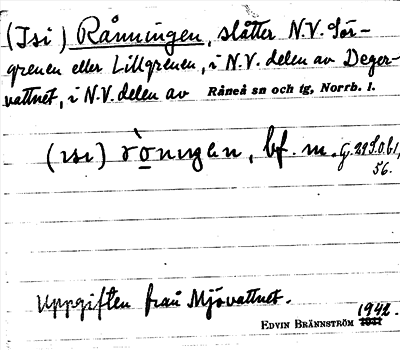 (Isi) Rånningen, slåtter N.V. Sör-
grenen eller Lillgrenen, i N.V. delen av Deger-
vattnet, i N.V. delen av Råneå sn och tg, Norrb. l.
(ısı) rònıŋɛn, bf. m. G. 29 S.
56.
Uppgiften från Mjövattnet.
1942.
EDVIN BRÄNNSTRÖM 1931